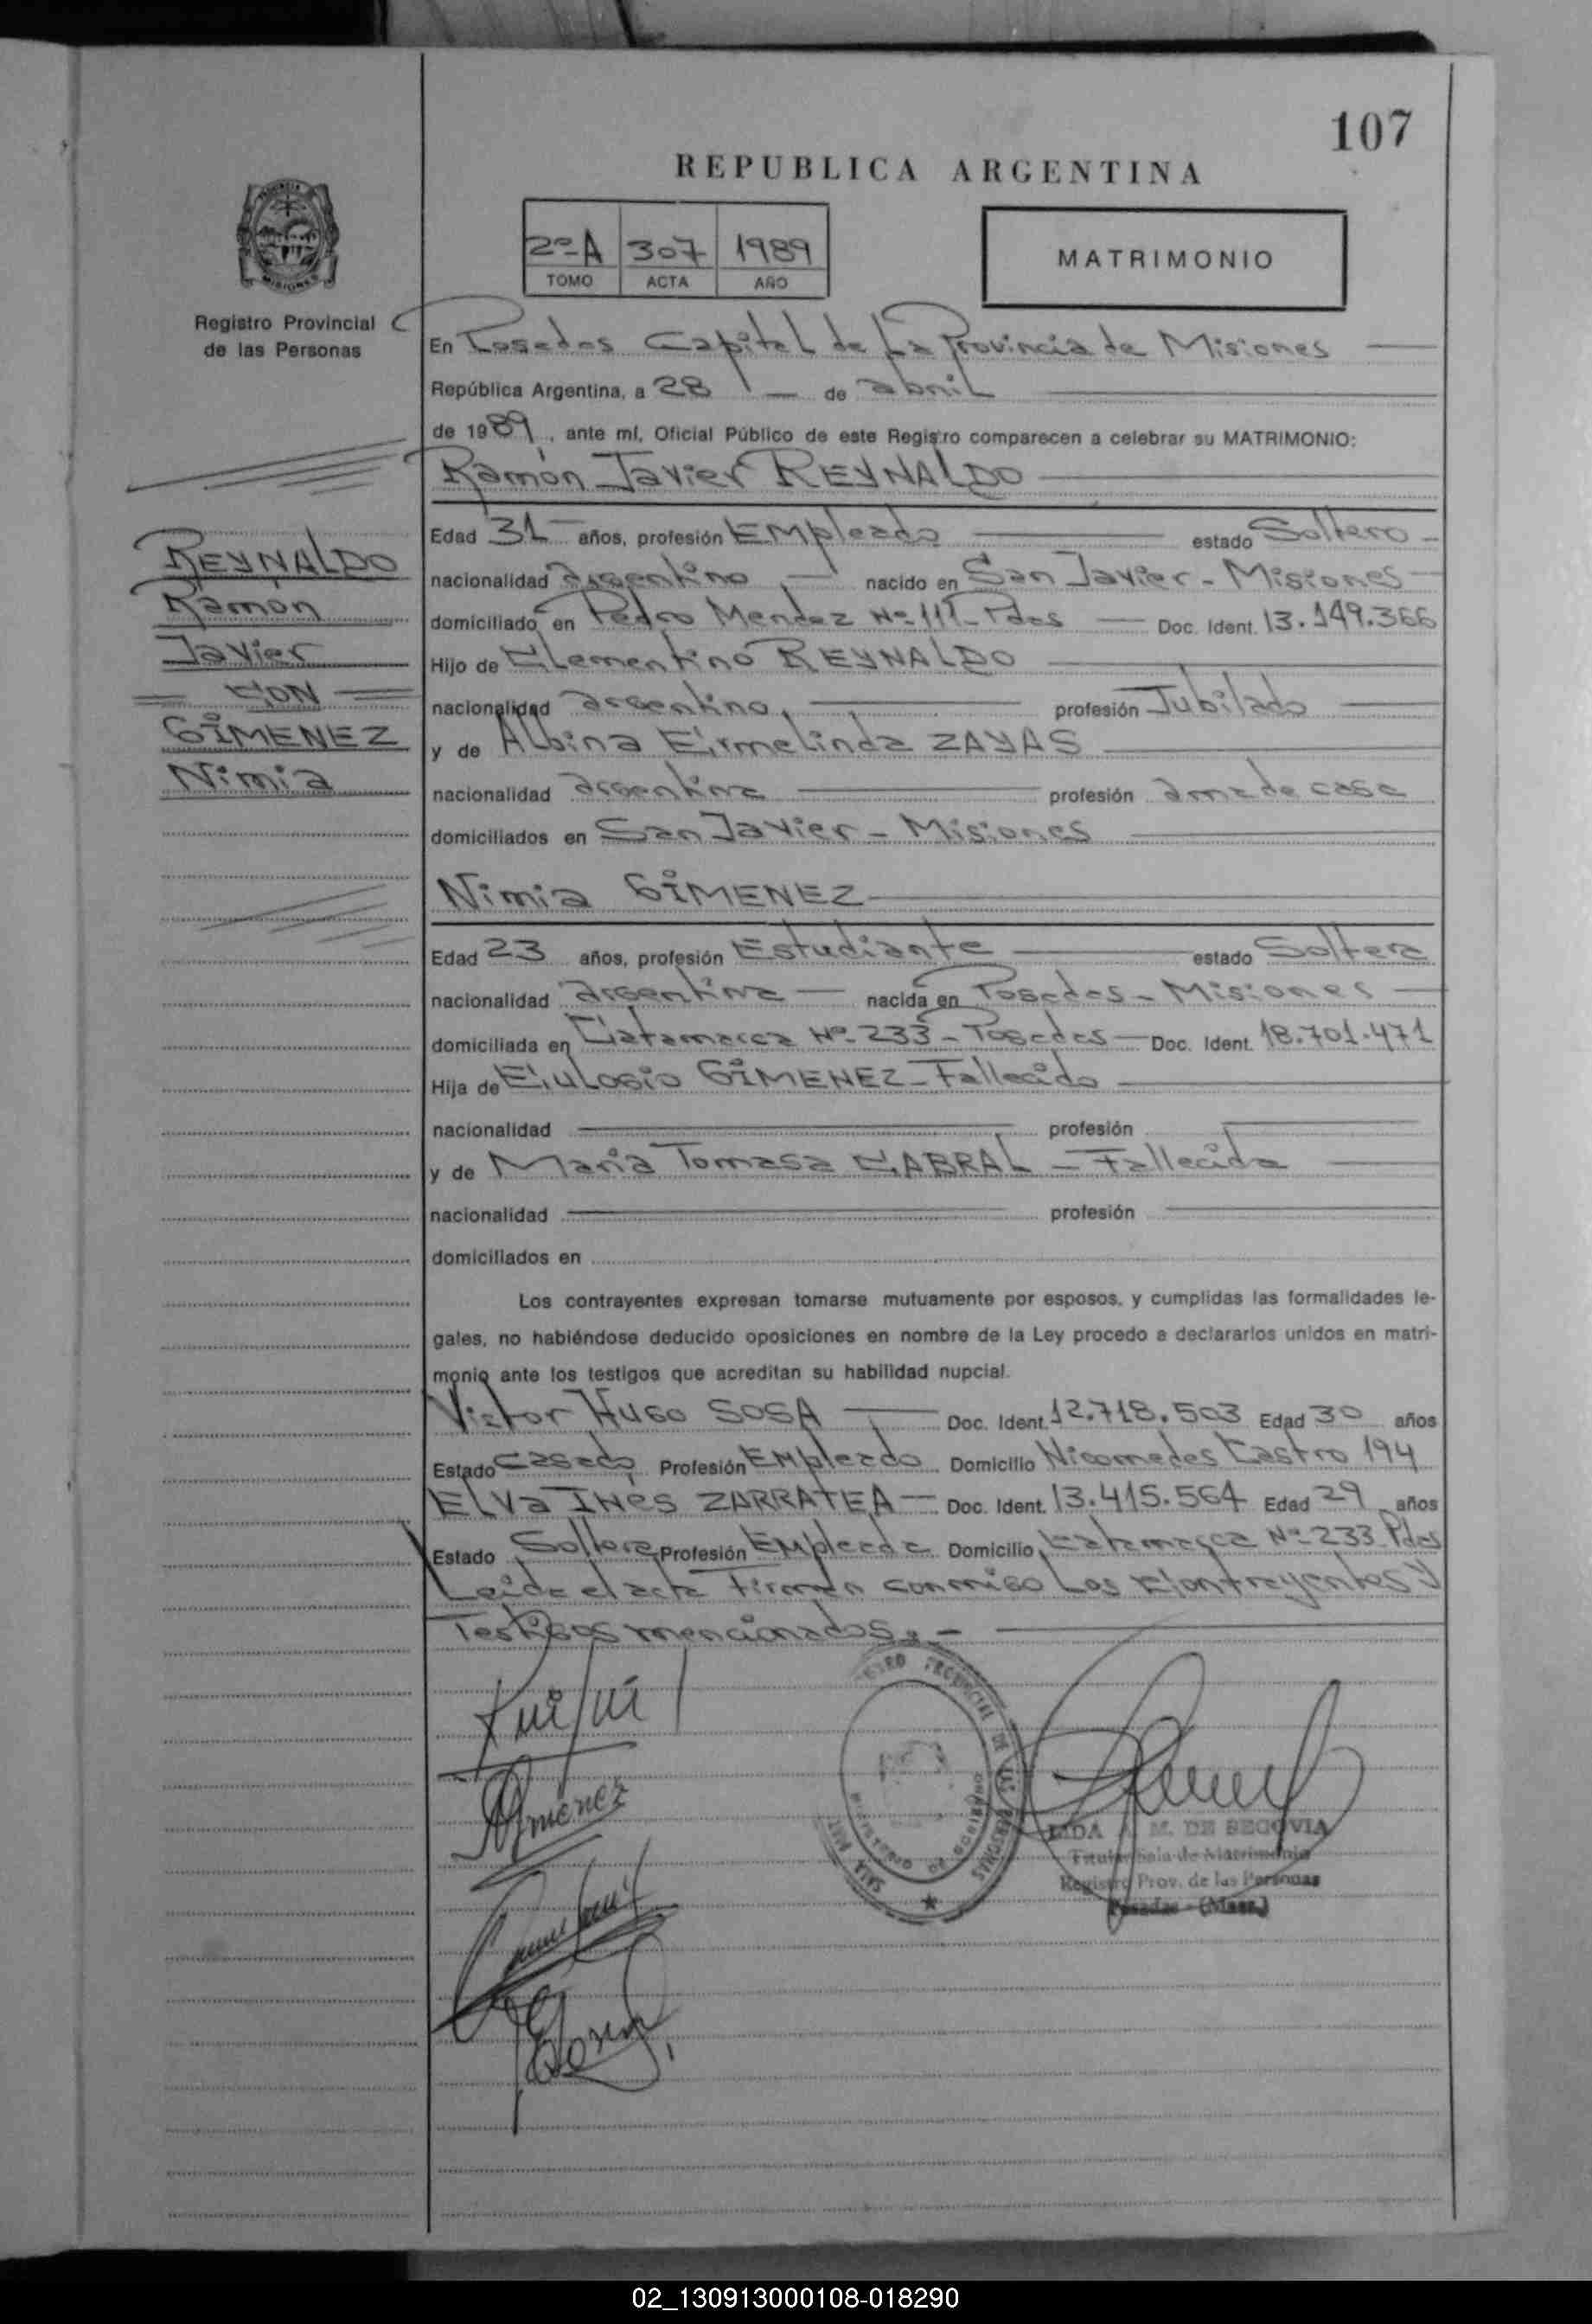 107
REPUBLICA ARGENTINA
2º-A 307 1989
TOMO ACTA AÑO
MATRIMONIO
MISIONES
Registro Provincial
de las Personas
REYNALDO
Ramón
Javier
CON
GIMENEZ
Nimia
En Posadas Capital de La Provincia de Misiones
República Argentina, a 28 de abril
de 1989, ante mí, Oficial Público de este Registro comparecen a celebrar su MATRIMONIO:
Ramón Javier REYNALDO
Edad 31 años, profesión Empleado estado Soltero
nacionalidad argentino nacido en San Javier - Misiones
domiciliado en Pedro Mendez Nº 111 - Pdas Doc. Ident. 13.149.366
Hijo de Clementino REYNALDO
nacionalidad argentino, profesión Jubilado
y de Albina Ermelinda ZAYAS
nacionalidad argentina profesión ama de casa
domiciliados en San Javier - Misiones
Nimia GIMENEZ
Edad 23 años, profesión Estudiante estado Soltera
nacionalidad argentina nacida en Posadas - Misiones
domiciliada en Catamarca Nº 233 - Posadas Doc. Ident. 18.701.471
Hija de Eulogio GIMENEZ - Fallecido
nacionalidad profesión
y de Maria Tomasa CABRAL - Fallecida
nacionalidad profesión
domiciliados en
Los contrayentes expresan tomarse mutuamente por esposos, y cumplidas las formalidades le-
gales, no habiéndose deducido oposiciones en nombre de la Ley procedo a declararlos unidos en matri-
monio ante los testigos que acreditan su habilidad nupcial.
Victor Hugo SOSA Doc. Ident. 12.718.503 Edad 30 años
Estado Casado Profesión Empleado Domicilio Nicomedes Castro 194
Elva Inés ZARRATEA Doc. Ident. 13.415.564 Edad 29 años
Estado Soltera Profesión Empleada Domicilio Catamarca Nº 233 Pdas
Leida el acta Firman conmigo Los Contrayentes y
Testigos mencionados. -
Gimenez
PROVINCIAL DE LAS PERSONAS
M. DE SEGOVIA
Titular Sala de Matrimonio
Registro Prov. de las Personas
Posadas - (Mnes.)
02_130913000108-018290